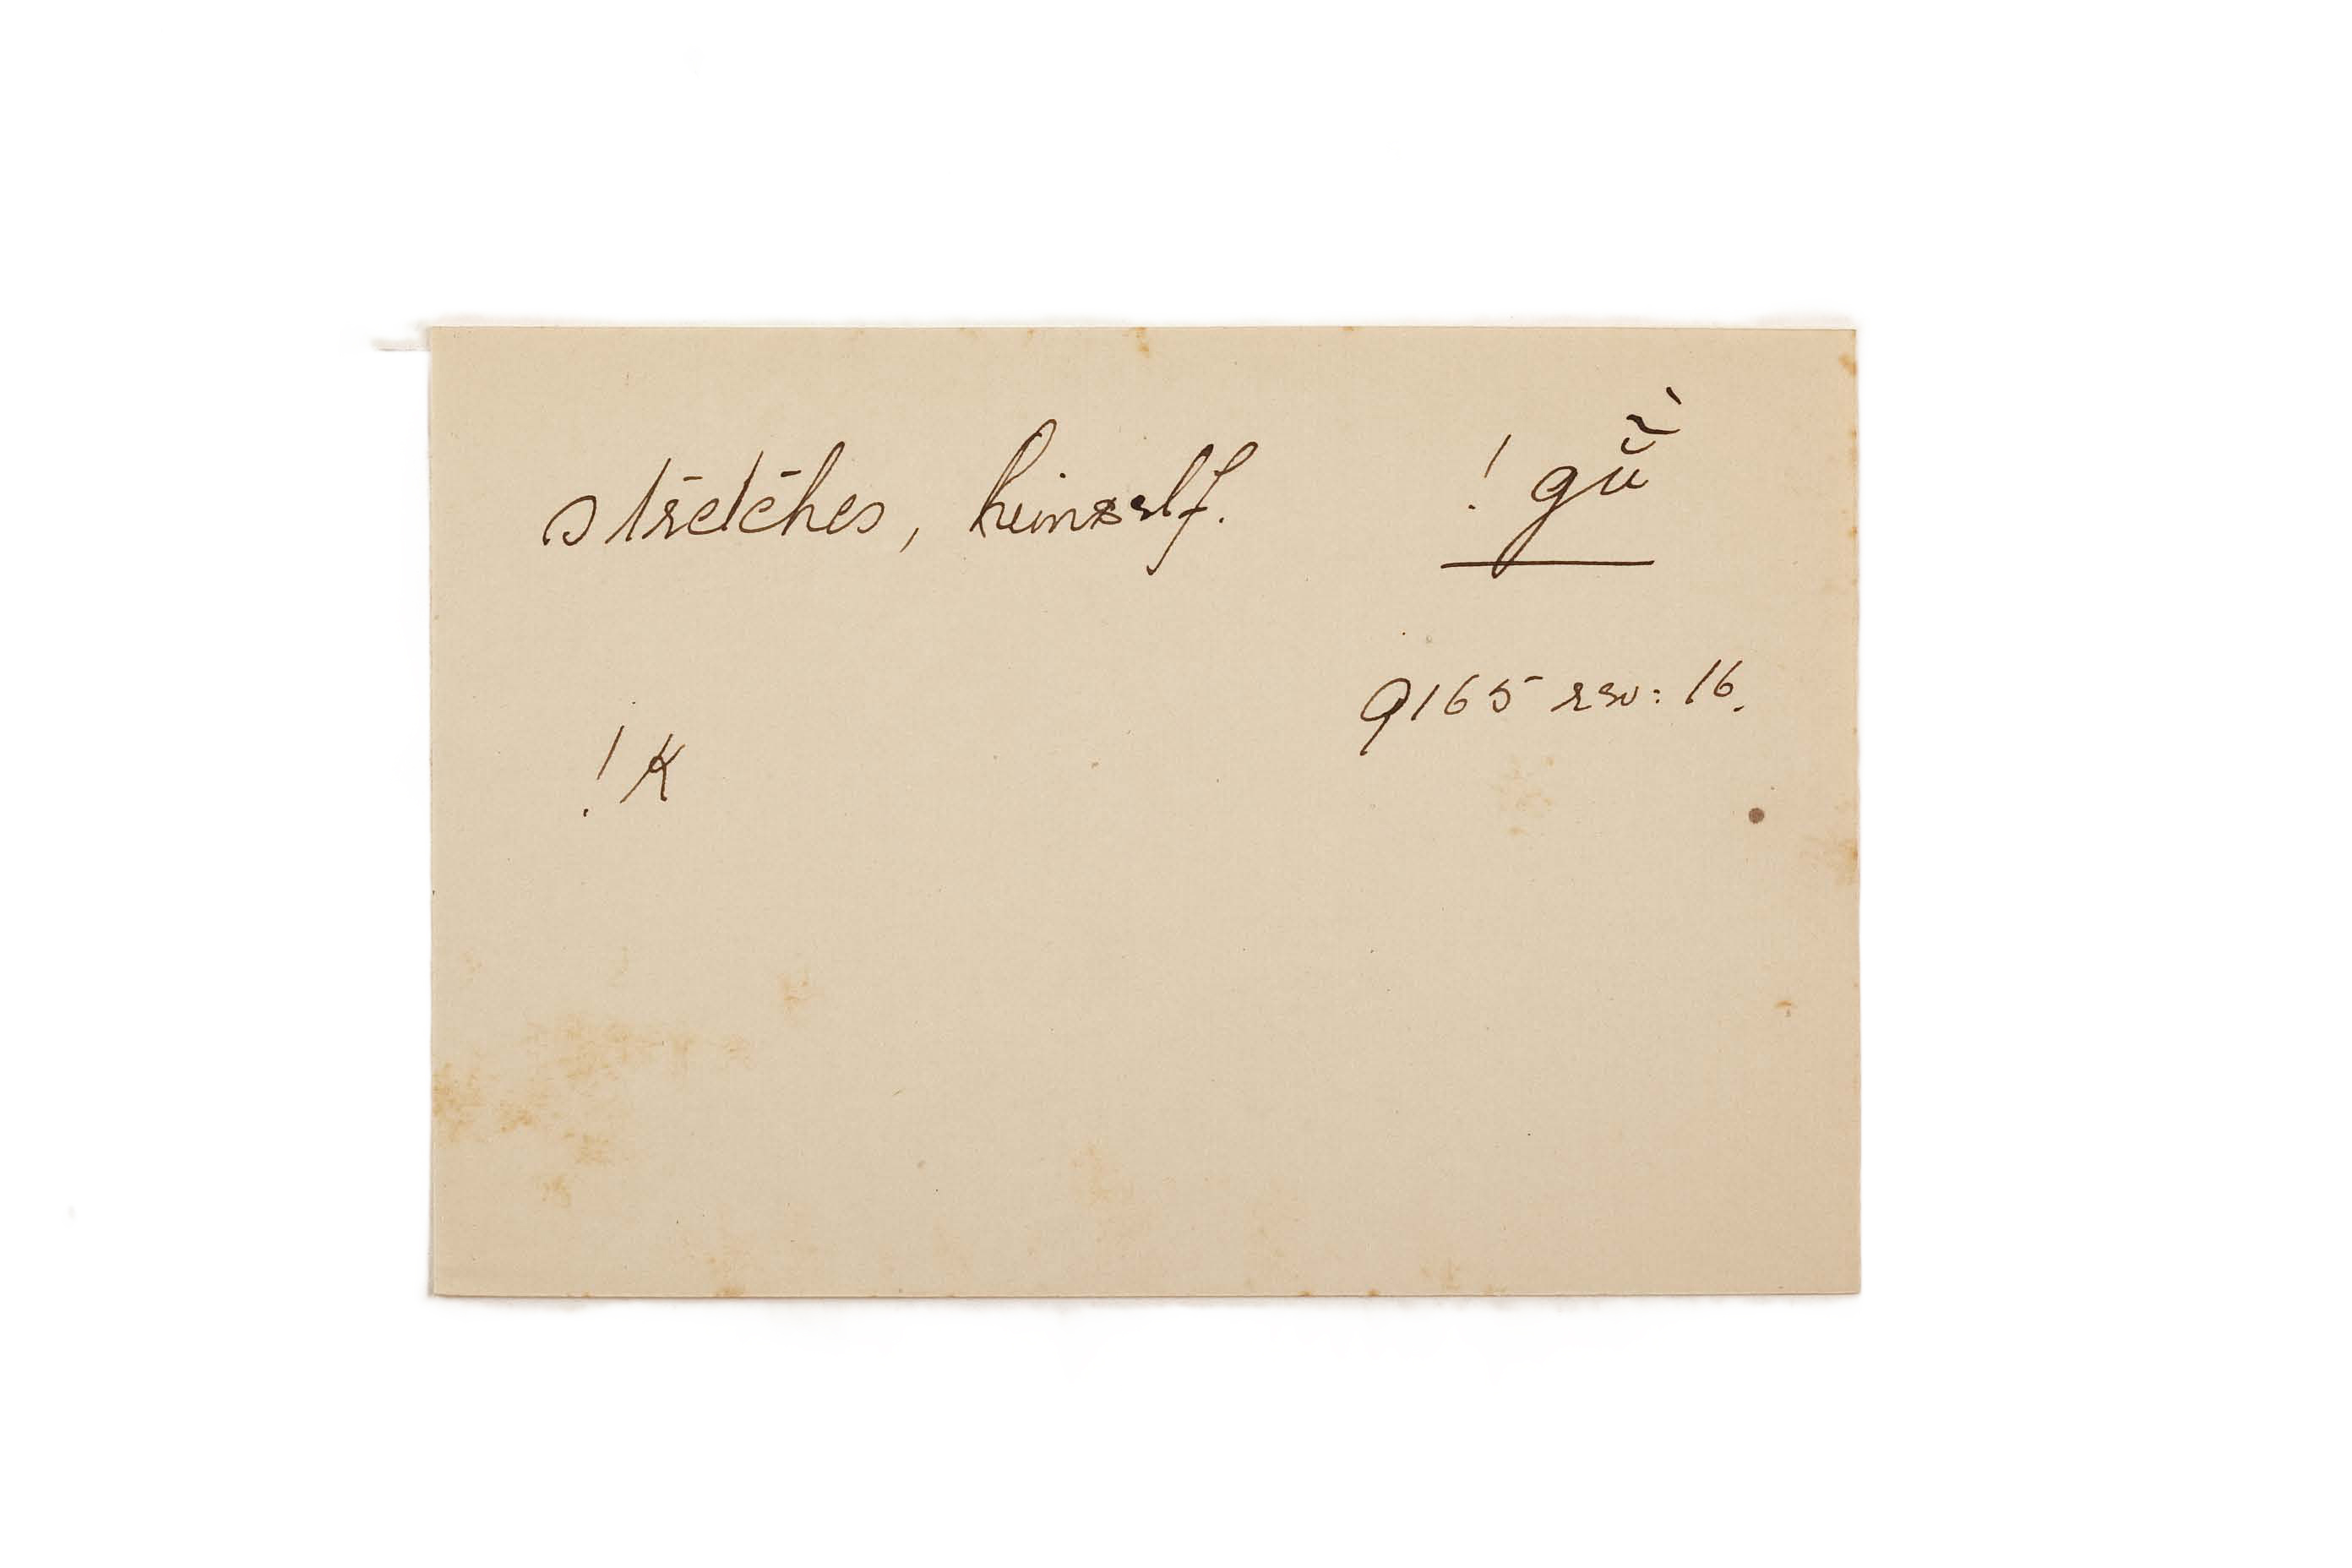 stretches, himself. ! gŭ̃̀
9165 rev: 16.
! K